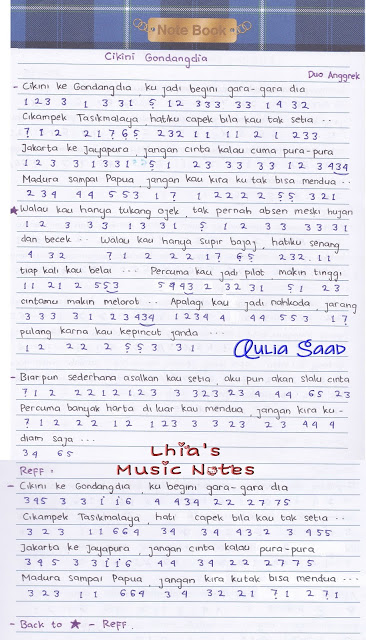 Note Book
Cikini Gondangdia
Duo Anggrek
- Cikini ke Gondangdia ku jadi begini gara-gara dia
1 2 3 3 1 3 3 1 5 1 2 3 3 3 3 3 1 4 3 2
Cikampek Tasikmalaya, hatiku capek bila kau tak setia ..
7 1 2 2 1 7 6 5 2 3 2 1 1 1 1 2 1 2 3 3
Jakarta ke Jayapura, jangan cinta kalau cuma pura-pura
1 2 3 3 1 3 3 1 5 1 2 3 3 3 3 3 1 2 3 4 3 4
Madura sampai Papua, jangan kau kira ku tak bisa mendua ..
2 3 4 4 4 5 5 3 1 7 1 2 2 2 2 5 5 3 2 1
★ Walau kau hanya tukang ojek, tak pernah absen meski hujan
1 2 3 3 3 1 3 3 1 5 1 2 3 3 3 3 3 1
dan becek .. Walau kau hanya supir bajaj, hatiku senang
4 3 2 7 1 2 2 2 1 7 6 5 2 3 2 . 1 1
tiap kali kau belai ... Percuma kau jadi pilot, makin tinggi
1 1 2 1 2 5 5 3 5 4 4 3 2 3 2 3 1 5 1 2 3
cintamu makin melorot .. Apalagi kau jadi nahkoda, jarang
3 3 3 3 1 2 3 4 3 4 1 2 3 4 4 4 4 5 5 3 1 7
pulang karna kau kepincut janda ...
1 2 2 2 2 5 5 3 3 1
Aulia Saad
- Biarpun sederhana asalkan kau setia, aku pun akan slalu cinta
7 1 2 2 2 1 2 1 2 3 3 3 2 3 2 3 4 4 4 6 5 2 3
Percuma banyak harta di luar kau mendua, jangan kira ku-
7 1 2 2 2 1 2 1 2 3 3 3 2 2 3 2 3 4 4 4
diam saja ...
3 4 6 5
Lhia's
Music Notes
Reff :
- Cikini ke Gondangdia, ku begini gara-gara dia
3 4 5 3 3 i i 6 4 4 3 4 2 2 2 7 7 5
Cikampek Tasikmalaya, hati capek bila kau tak setia ..
3 2 3 1 1 6 6 4 3 4 3 4 4 3 2 3 4 5 5
Jakarta ke Jayapura, jangan cinta kalau pura-pura
3 4 5 3 3 i i 6 4 4 3 4 2 2 2 7 7 5
Madura sampai Papua, jangan kira kutak bisa mendua ...
3 2 3 1 1 6 6 4 3 4 3 2 2 1 7 1 2 7 1
- Back to ★ - Reff.